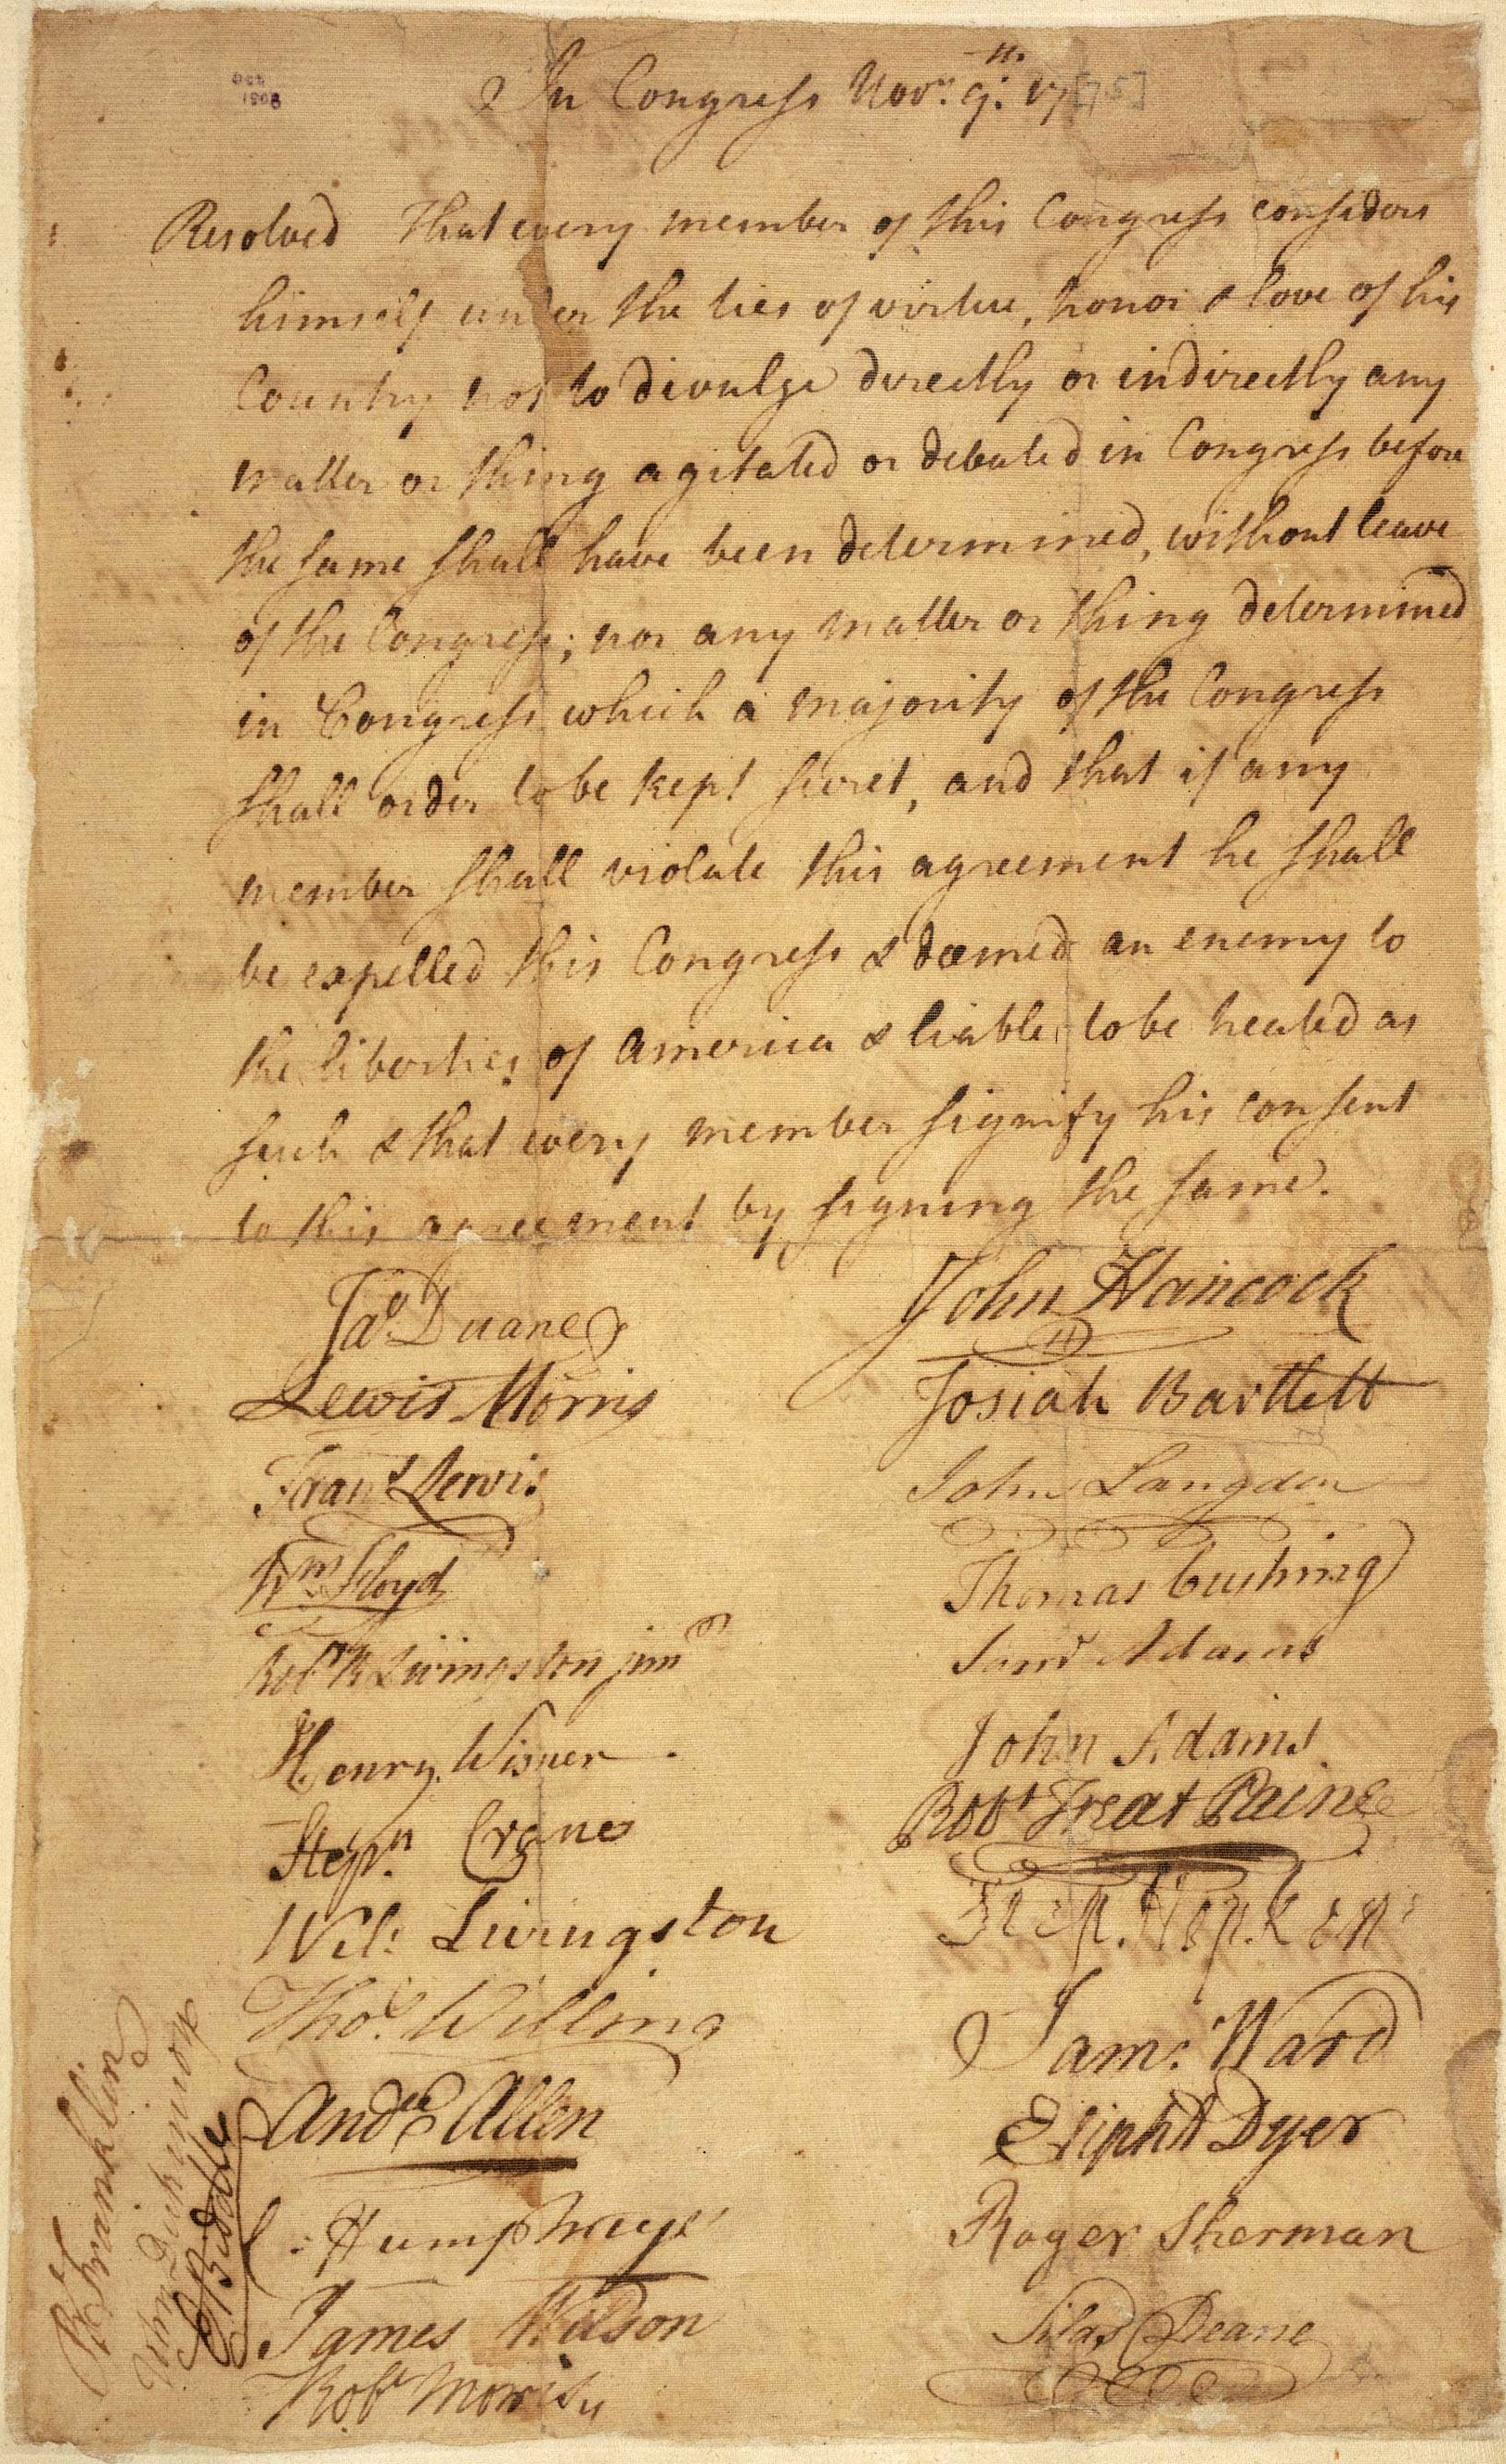 In Congress Nov.r 9.th 17[75]
Resolved That every member of this Congress considers
himself under the ties of virtue, honor & love of his
Country not to divulge directly or indirectly any
matter or thing agitated or debated in Congress before
the same shall have been determined, without leave
of the Congress; nor any matter or thing determined
in Congress which a majority of the Congress
shall order to be kept secret, and that if any
member shall violate this agreement he shall
be expelled this Congress & deemed an enemy to
the liberties of America & liable to be treated as
such & that every member signify his consent
to this agreement by signing the same.
Jas. Duane
Lewis Morris
Frans Lewis
Wm Floyd
Robt R Livingston junr
Henry Wisner
Stepn. Crane
Wil: Livingston
Thos. Willing
Andw Allen
C: Humphreys
James Wilson
Robt Morris
John Hancock
Josiah Bartlett
John Langdon
Thomas Cushing
Saml Adams
John Adams
Robt Treat Paine
Step. Hopkins
Sam: Ward
Elipht Dyer
Roger Sherman
Silas Deane
B Franklin
John Dickinson
E Biddle